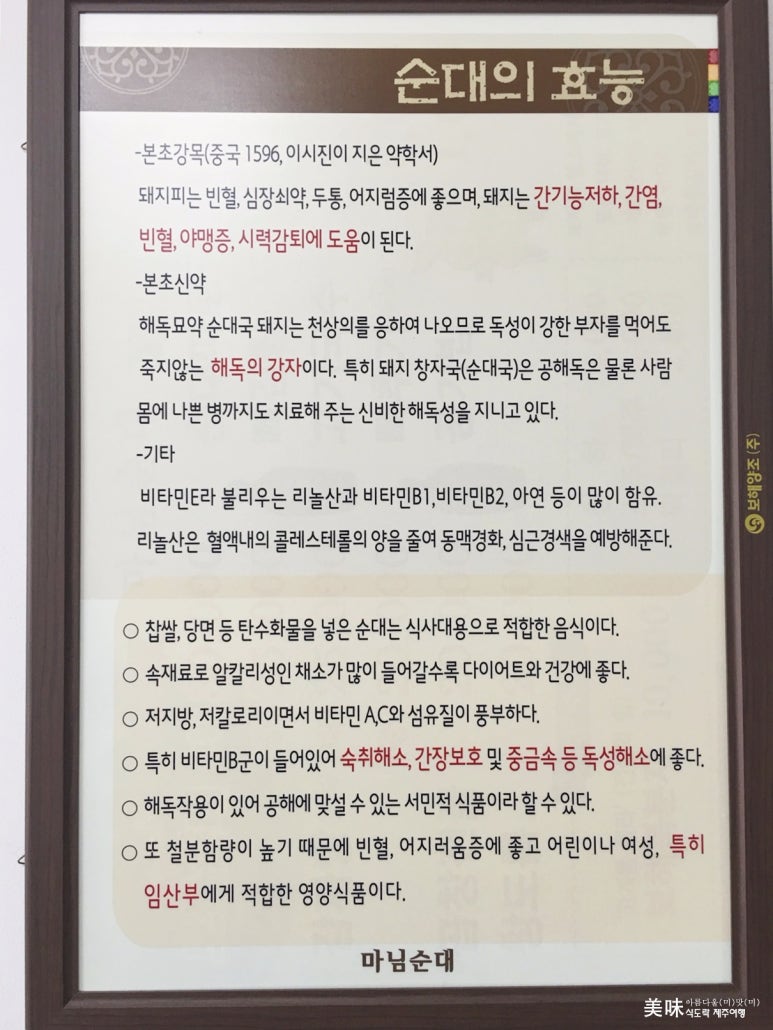 순대의 효능
-본초강목(중국 1596, 이시진이 지은 약학서)
돼지피는 빈혈, 심장쇠약, 두통, 어지럼증에 좋으며, 돼지는 간기능저하, 간염,
빈혈, 야맹증, 시력감퇴에 도움이 된다.
-본초신약
해독묘약 순대국 돼지는 천상의를 응하여 나오므로 독성이 강한 부자를 먹어도
죽지않는 해독의 강자이다. 특히 돼지 창자국(순대국)은 공해독은 물론 사람
몸에 나쁜 병까지도 치료해 주는 신비한 해독성을 지니고 있다.
-기타
비타민E라 불리우는 리놀산과 비타민B1,비타민B2, 아연 등이 많이 함유.
리놀산은 혈액내의 콜레스테롤의 양을 줄여 동맥경화, 심근경색을 예방해준다.
○ 찹쌀, 당면 등 탄수화물을 넣은 순대는 식사대용으로 적합한 음식이다.
○ 속재료로 알칼리성인 채소가 많이 들어갈수록 다이어트와 건강에 좋다.
○ 저지방, 저칼로리이면서 비타민 A,C와 섬유질이 풍부하다.
○ 특히 비타민B군이 들어있어 숙취해소, 간장보호 및 중금속 등 독성해소에 좋다.
○ 해독작용이 있어 공해에 맞설 수 있는 서민적 식품이라 할 수 있다.
○ 또 철분함량이 높기 때문에 빈혈, 어지러움증에 좋고 어린이나 여성, 특히
임산부에게 적합한 영양식품이다.
마님순대
보해양조 (주)
美味 아름다울(미)맛(미)
식도락 제주여행